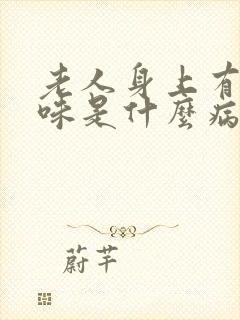 老人身上有
味是什麼病
蔚芊